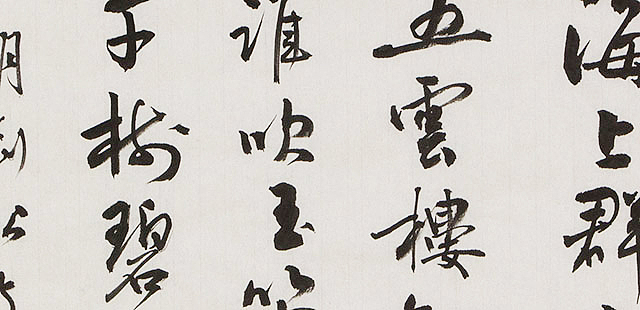 海上群
五雲樓
誰吹玉
子樹碧
明